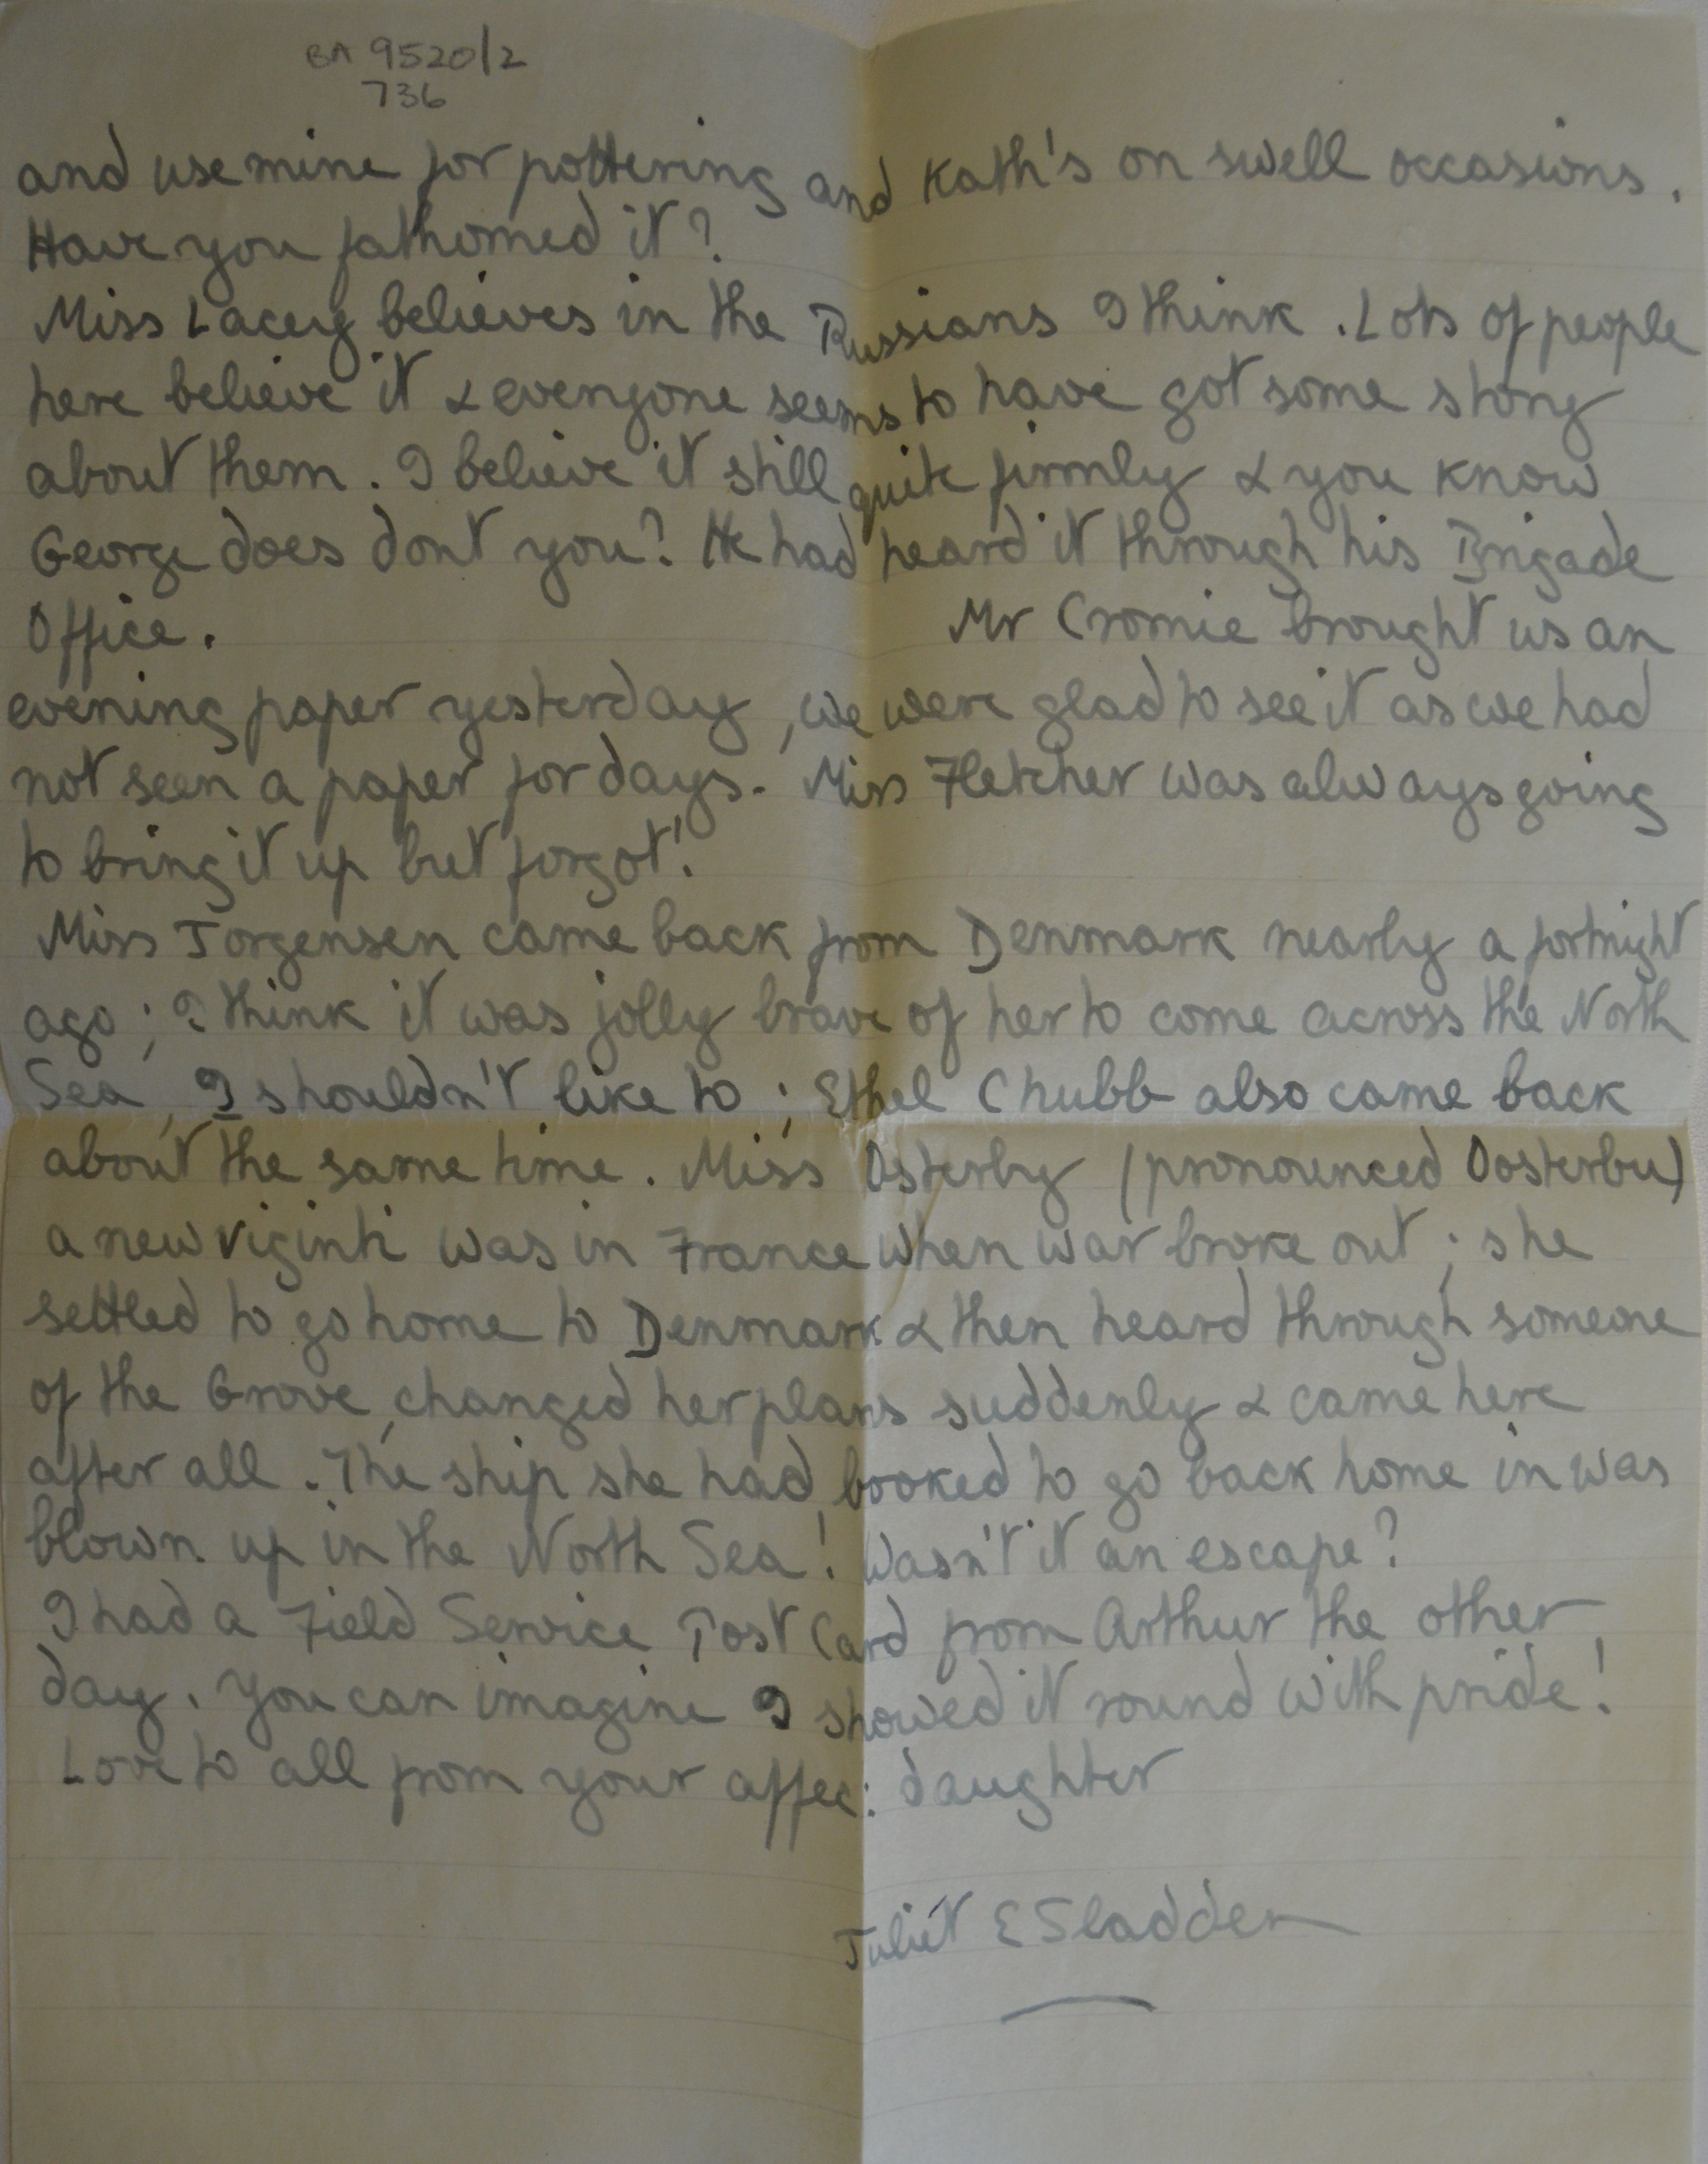 BA 9520/2
736
and use mine for pottering and Kath's on swell occasions.
Have you fathomed it?
Miss Lacey believes in the Russians I think. Lots of people
here believe it & everyone seems to have got some story
about them. I believe it still quite firmly & you know
George does dont you? He had heard it through his Brigade
Office. Mr Cromie brought us an
evening paper yesterday, we were glad to see it as we had
not seen a paper for days. Miss Fletcher was always going
to bring it up but forgot!
Miss Jorgensen came back from Denmark nearly a fortnight
ago; I think it was jolly brave of her to come across the North
Sea, I shouldn't like to; Ethel Chubb also came back
about the same time. Miss Osterby (pronounced Oosterbu)
a new viginti was in France when war broke out; she
settled to go home to Denmark & then heard through someone
of the Grove, changed her plans suddenly & came here
after all. The ship she had booked to go back home in was
blown up in the North Sea! Wasn't it an escape?
I had a Field Service Post Card from Arthur the other
day. You can imagine I showed it round with pride!
Love to all from your affec: daughter
Juliet E Sladden